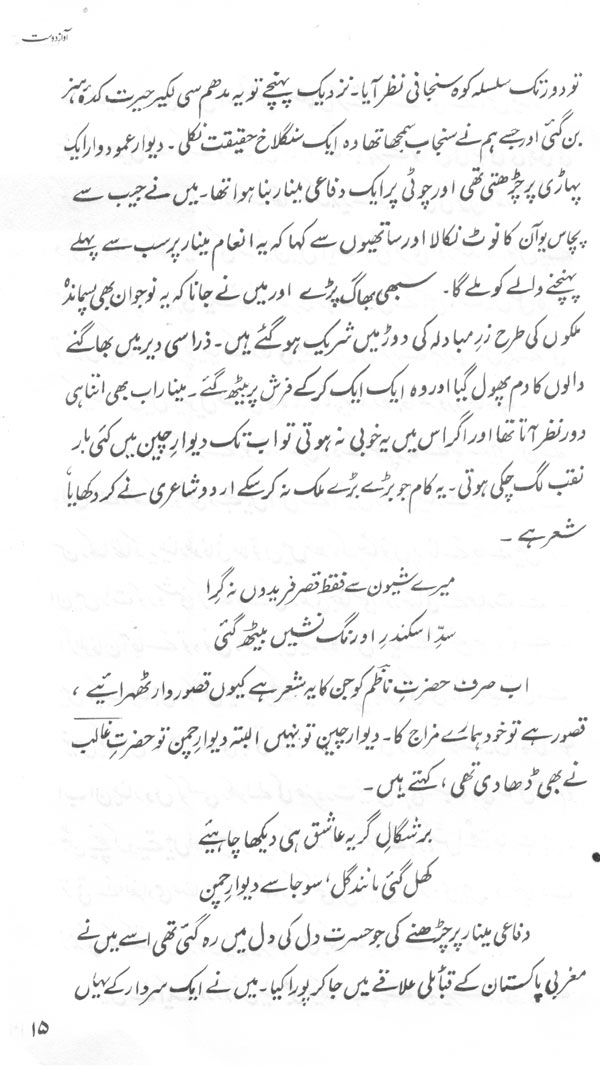 آوازِ دوست
تو دور تک سلسلہ کوہ سنجانی نظر آیا۔ نزدیک پہنچے تو یہ مدھم سی لکیر حیرت کدۂ ہنر
بن گئی اور جسے ہم نے سنجاب سمجھا تھا وہ ایک سنگلاخ حقیقت نکلی۔ دیوار عمود وار ایک
پہاڑی پر چڑھتی تھی اور چوٹی پر ایک دفاعی مینار بنا ہوا تھا۔ میں نے جیب سے
پچاس یوآن کا نوٹ نکالا اور ساتھیوں سے کہا کہ یہ انعام مینار پر سب سے پہلے
پہنچنے والے کو ملے گا۔ سبھی بھاگ پڑے اور میں نے جانا کہ یہ نوجوان بھی پسماندہ
ملکوں کی طرح زرِ مبادلہ کی دوڑ میں شریک ہو گئے ہیں۔ ذرا سی دیر میں بھاگنے
والوں کا دم پھول گیا اور وہ ایک ایک کر کے فرش پر بیٹھ گئے۔ مینار اب بھی اتنا ہی
دور نظر آتا تھا اور اگر اس میں یہ خوبی نہ ہوتی تو اب تک دیوارِ چین میں کئی بار
نقب لگ چکی ہوتی۔ یہ کام جو بڑے بڑے ملک نہ کر سکے اردو شاعری نے کر دکھایا
شعر ہے۔
میرے شیون سے فقط قصر فریدوں نہ گِرا
سدِّ اسکندرِ اورنگ نشیں بیٹھ گئی
اب صرف حضرتِ ناظم کو جن کا یہ شعر ہے کیوں قصور وار ٹھہرائیے ،
قصور ہے تو خود ہمارے مزاج کا۔ دیوارِ چین تو نہیں البتہ دیوارِ چمن تو حضرتِ غالب
نے بھی ڈھا دی تھی ، کہتے ہیں۔
برشگالِ گریہ عاشق ہی دیکھا چاہیئے
کھل گئی مانندِ گل، سو جا سے دیوارِ چمن
دفاعی مینار پر چڑھنے کی جو حسرت دل کی دل میں رہ گئی تھی اسے میں نے
مغربی پاکستان کے قبائلی علاقے میں جا کر پورا کیا۔ میں نے ایک سردار کے یہاں
۱۵